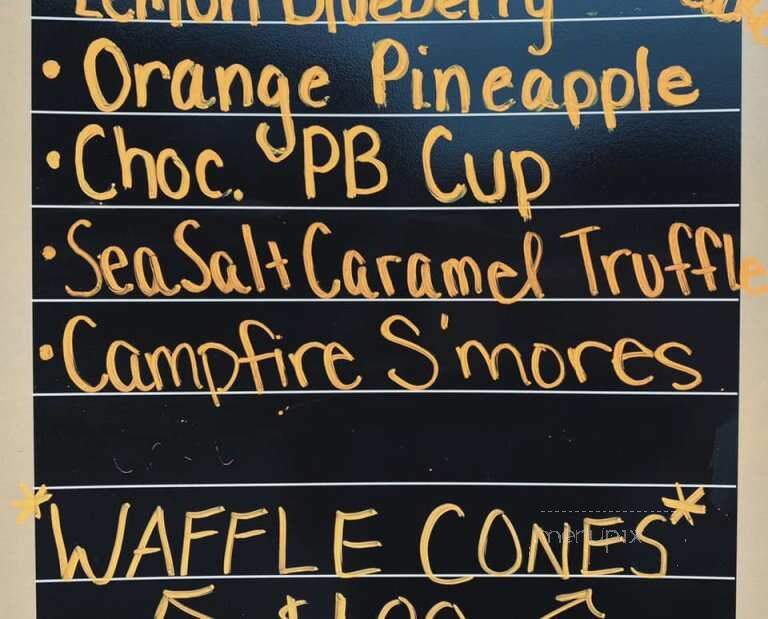 Lemon Blueberry
• Orange Pineapple
• Choc. PB Cup
• SeaSalt Caramel Truffle
• Campfire S'mores
*WAFFLE CONES*
menupix